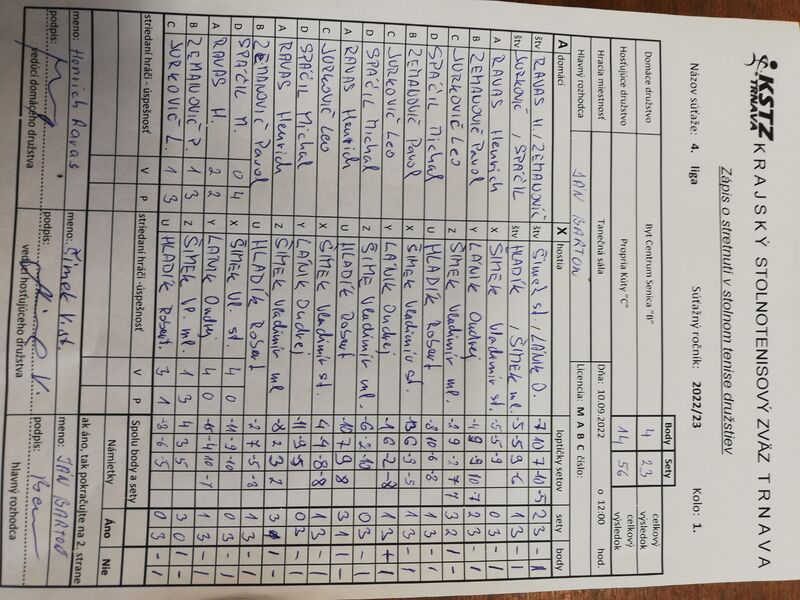 KSTZ TRNAVA KRAJSKÝ STOLNOTENISOVÝ ZVÄZ TRNAVA
Zápis o stretnutí v stolnom tenise družstiev
Názov súťaže: 4. liga Súťažný ročník: 2022/23 Kolo: 1.
Body Sety
Domáce družstvo Byt Centrum Senica "B" 4 23 celkový výsledok
Hosťujúce družstvo Propria Kúty "C" 14 56 celkový výsledok
Hracia miestnosť Tanečná sála Dňa: 10.09.2022 o 12:00 hod.
Hlavný rozhodca JÁN BARTOŇ Licencia: M A B C číslo:
A domáci X hostia loptičky setov sety body
štv RAVAS H. / ZEMANOVIČ štv Šimek st. / LÁNIK O. -7 10 7 -10 -5 2 3 - 1
štv JURKOVIČ, SPÁČIL štv HLADÍK, ŠIMEK ml. -5 -5 9 -6 1 3 - 1
A RAVAS Henrich X ŠIMEK Vladimír st. -5 -5 -9 0 3 - 1
B ZEMANOVIČ Pavol Y LÁNIK Ondrej
C JURKOVIČ Leo Z ŠIMEK Vladimír ml.
D SPÁČIL Michal U HLADÍK Robert -8 10 -6 -8 1 3 - 1
B ZEMANOVIČ Pavol X ŠIMEK Vladimír st. 1 3 - 1
C JURKOVIČ Leo Y LÁNIK Ondrej
D SPÁČIL Michal Z ŠIMEK Vladimír ml. -6 -2 -10 0 3 - 1
A RAVAS Henrich U HLADÍK Robert -10 7 9 8 3 1 1 -
C JURKOVIČ Leo X ŠIMEK Vladimír st. 1 3 - 1
D SPÁČIL Michal Y LÁNIK Ondrej -11 -9 -5 0 3 - 1
A RAVAS Henrich Z ŠIMEK Vladimír ml 8 2 3
B ZEMANOVIČ Pavol U HLADÍK Robert -2 7 -5 -8 1 3 - 1
D SPÁČIL M. 0 4 X ŠIMEK Vl. st. 4 0 -11 -9 -10 0 3 - 1
A RAVAS H. 2 2 Y LÁNIK Ondrej 4 0 1 3 - 1
B ZEMANOVIČ P. 1 3 Z ŠIMEK Vl. ml. 1 3 4 3 5 3 0 1 -
C JURKOVIČ L. 1 3 U HLADÍK Robert 3 1 -8 -6 -5 0 3 - 1
striedaní hráči - úspešnosť V P striedaní hráči -úspešnosť V P Spolu body a sety
Námietky Áno Nie
ak áno, tak pokračujte na 2. strane
meno: Henrich Ravas meno: Šimek Vl. st. meno: JÁN BARTOŇ
podpis: podpis: podpis:
vedúci domáceho družstva vedúci hosťujúceho družstva hlavný rozhodca